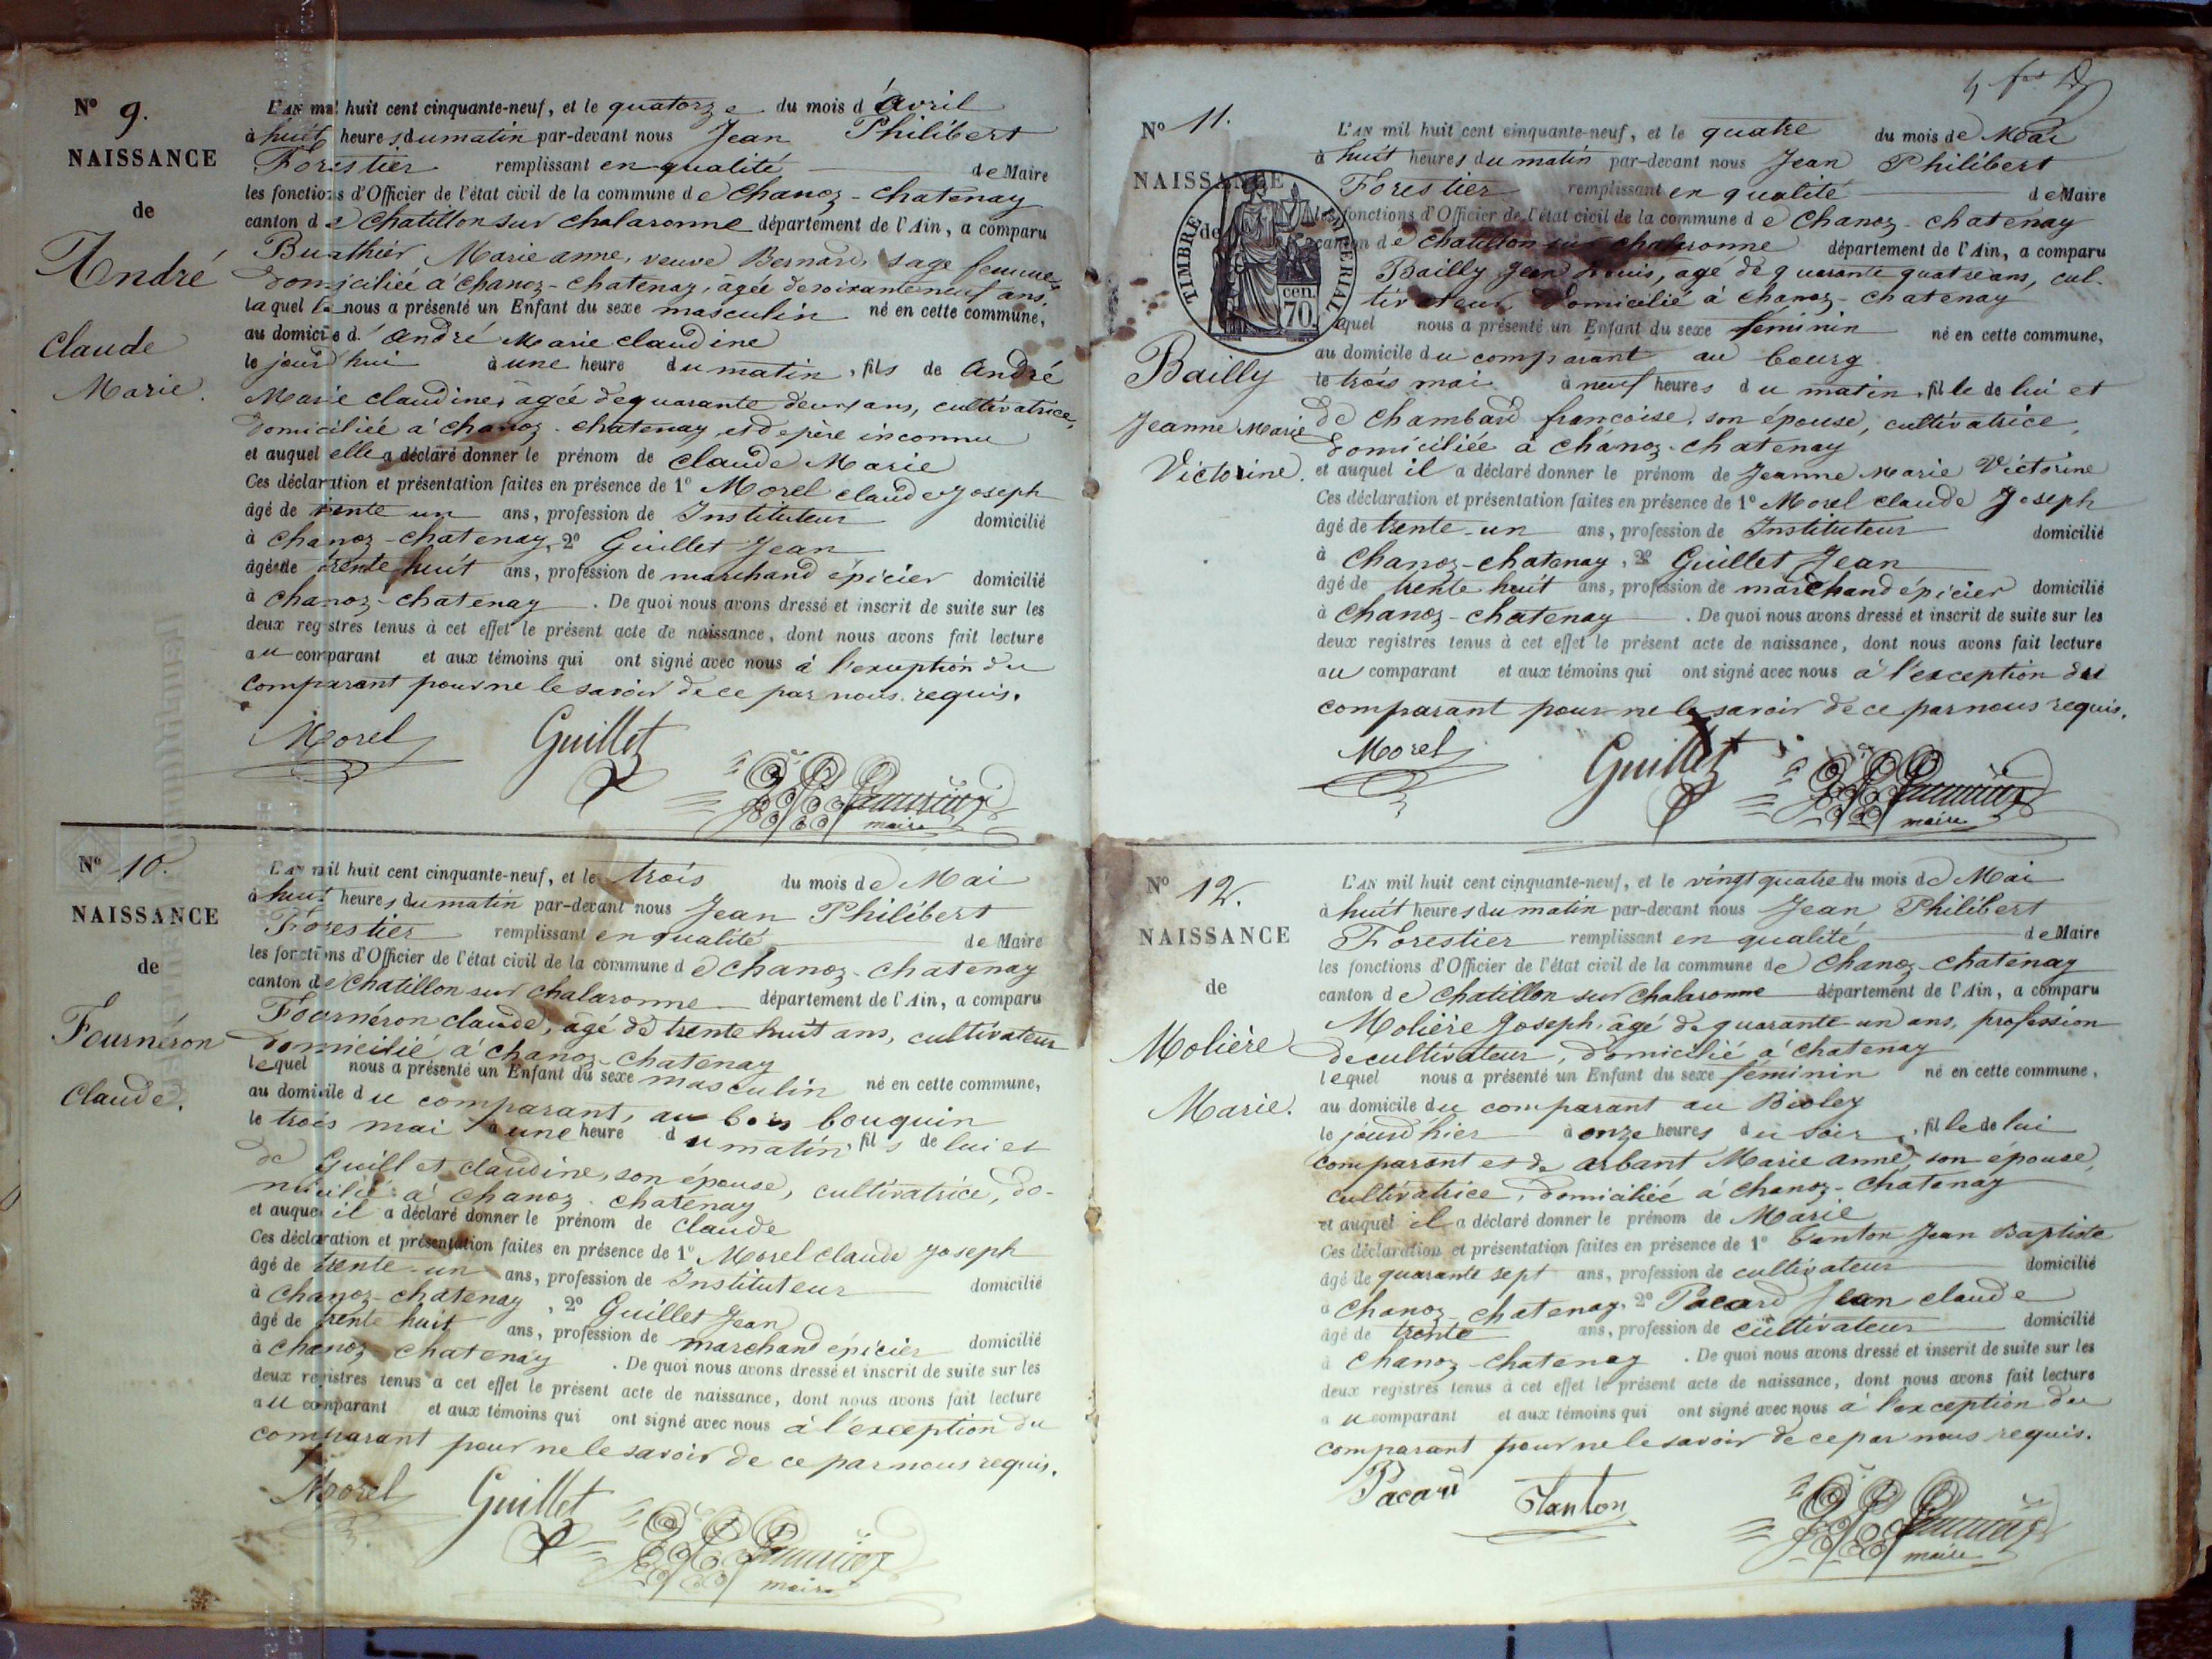 N° 9.
NAISSANCE
de
André
Claude
Marie.
L'AN mil huit cent cinquante-neuf, et le quatorze du mois d'avril
à huit heures du matin par-devant nous Jean Philibert
Forestier remplissant en qualité de Maire
les fonctions d'Officier de l'état civil de la commune de Chanoz-Chatenay
canton de Chatillon sur Chalaronne département de l'Ain, a comparu
Buathier Marie anne, veuve Bernard, sage femme,
domiciliée à Chanoz-Chatenay, âgée de soixante neuf ans,
laquelle nous a présenté un Enfant du sexe masculin né en cette commune,
au domicile d'André Marie claudine
le jourd'hui à une heure du matin, fils de André
Marie claudine, âgée de quarante deux ans, cultivatrice,
domiciliée à Chanoz-Chatenay et de père inconnu
et auquel elle a déclaré donner le prénom de Claude Marie
Ces déclaration et présentation faites en présence de 1° Morel Claude Joseph
âgé de trente un ans, profession de Instituteur domicilié
à Chanoz-Chatenay, 2° Guillet Jean
âgé de trente huit ans, profession de marchand épicier domicilié
à Chanoz-Chatenay. De quoi nous avons dressé et inscrit de suite sur les
deux registres tenus à cet effet le présent acte de naissance, dont nous avons fait lecture
au comparant et aux témoins qui ont signé avec nous à l'exception du
comparant pour ne le savoir de ce par nous requis.
Morel Guillet
maire
N° 10.
NAISSANCE
de
Fournéron
Claude.
L'AN mil huit cent cinquante-neuf, et le trois du mois de Mai
à huit heures du matin par-devant nous Jean Philibert
Forestier remplissant en qualité de Maire
les fonctions d'Officier de l'état civil de la commune de Chanoz-Chatenay
canton de Chatillon sur Chalaronne département de l'Ain, a comparu
Fournéron claude, âgé de trente huit ans, cultivateur
domicilié à Chanoz-Chatenay
lequel nous a présenté un Enfant du sexe masculin né en cette commune,
au domicile du comparant, au bois bouquin
le trois mai à une heure du matin, fils de lui et
de Guillet claudine, son épouse, cultivatrice, do-
micilié à Chanoz-Chatenay
et auquel il a déclaré donner le prénom de Claude
Ces déclaration et présentation faites en présence de 1° Morel Claude Joseph
âgé de trente-un ans, profession de Instituteur domicilié
à Chanoz-Chatenay, 2° Guillet Jean
âgé de trente huit ans, profession de marchand épicier domicilié
à Chanoz-Chatenay. De quoi nous avons dressé et inscrit de suite sur les
deux registres tenus à cet effet le présent acte de naissance, dont nous avons fait lecture
au comparant et aux témoins qui ont signé avec nous à l'exception du
comparant pour ne le savoir de ce par nous requis.
Morel Guillet
maire
N° 11.
NAISSANCE
de
TIMBRE IMPERIAL
cen.
70
Bailly
Jeanne Marie
Victorine.
L'AN mil huit cent cinquante-neuf, et le quatre du mois de Mai
à huit heures du matin par-devant nous Jean Philibert
Forestier remplissant en qualité de Maire
les fonctions d'Officier de l'état civil de la commune de Chanoz-Chatenay
canton de Chatillon sur Chalaronne département de l'Ain, a comparu
Bailly Jean Louis, âgé de quarante quatre ans, cul-
tivateur, domicilié à Chanoz-Chatenay
lequel nous a présenté un Enfant du sexe féminin né en cette commune,
au domicile du comparant au bourg
le trois mai à neuf heures du matin, fille de lui et
de Chambard françoise, son épouse, cultivatrice,
domiciliée à Chanoz-Chatenay
et auquel il a déclaré donner le prénom de Jeanne Marie Victorine
Ces déclaration et présentation faites en présence de 1° Morel Claude Joseph
âgé de trente-un ans, profession de Instituteur domicilié
à Chanoz-Chatenay, 2° Guillet Jean
âgé de trente huit ans, profession de marchand épicier domicilié
à Chanoz-Chatenay. De quoi nous avons dressé et inscrit de suite sur les
deux registres tenus à cet effet le présent acte de naissance, dont nous avons fait lecture
au comparant et aux témoins qui ont signé avec nous à l'exception du
comparant pour ne le savoir de ce par nous requis.
Morel Guillet
maire
N° 12.
NAISSANCE
de
Molière
Marie.
L'AN mil huit cent cinquante-neuf, et le vingt quatre du mois de Mai
à huit heures du matin par-devant nous Jean Philibert
Forestier remplissant en qualité de Maire
les fonctions d'Officier de l'état civil de la commune de Chanoz-Chatenay
canton de Chatillon sur Chalaronne département de l'Ain, a comparu
Molière Joseph, âgé de quarante-un ans, profession
de cultivateur, domicilié à Chatenay
lequel nous a présenté un Enfant du sexe féminin né en cette commune,
au domicile du comparant au Bioley
le jourd'hier à onze heures du soir, fille de lui
comparant et de arbant Marie anne, son épouse,
cultivatrice, domiciliée à Chanoz-Chatenay
et auquel il a déclaré donner le prénom de Marie
Ces déclaration et présentation faites en présence de 1° Jean Baptiste
âgé de quarante sept ans, profession de cultivateur domicilié
à Chanoz-Chatenay, 2° Pacard Jean claude
âgé de trente ans, profession de cultivateur domicilié
à Chanoz-Chatenay. De quoi nous avons dressé et inscrit de suite sur les
deux registres tenus à cet effet le présent acte de naissance, dont nous avons fait lecture
au comparant et aux témoins qui ont signé avec nous à l'exception du
comparant pour ne le savoir de ce par nous requis.
Pacard
maire